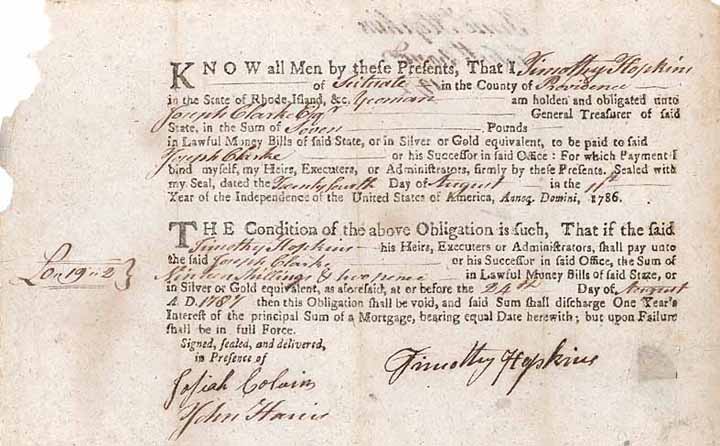 KNOW all Men by theſe Preſents, That I, Timothy Hopkins
of Scituate in the County of Providence
in the State of Rhode-Iſland, &c. Yeoman am holden and obligated unto
Joseph Clarke Esqr General Treaſurer of ſaid
State, in the Sum of Seven Pounds
in Lawful Money Bills of ſaid State, or in Silver or Gold equivalent, to be paid to ſaid
Joseph Clarke or his Succeſſor in ſaid Office: For which Payment I
bind myſelf, my Heirs, Executors, or Adminiſtrators, firmly by theſe Preſents. Sealed with
my Seal, dated the Twenty fourth Day of August in the 11th
Year of the Independence of the United States of America, Annoq. Domini, 1786.
THE Condition of the above Obligation is ſuch, That if the ſaid
Timothy Hopkins his Heirs, Executors or Adminiſtrators, ſhall pay unto
the ſaid Joseph Clarke or his Succeſſor in ſaid Office, the Sum of
Nineteen Shillings & two pence in Lawful Money Bills of ſaid State, or
L0 „ 19 „ 2 }
in Silver or Gold equivalent, as aforeſaid, at or before the 24th Day of August
A D. 1787 then this Obligation ſhall be void, and ſaid Sum ſhall diſcharge One Year's
Intereſt of the principal Sum of a Mortgage, bearing equal Date herewith; but upon Failure
ſhall be in full Force.
Signed, ſealed, and delivered,
in Preſence of
Timothy Hopkins
Josiah Colvin
John Harris